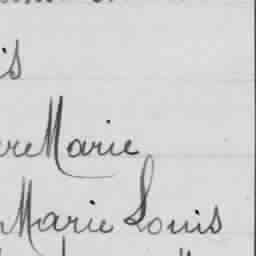 is
re Marie
Marie Louis